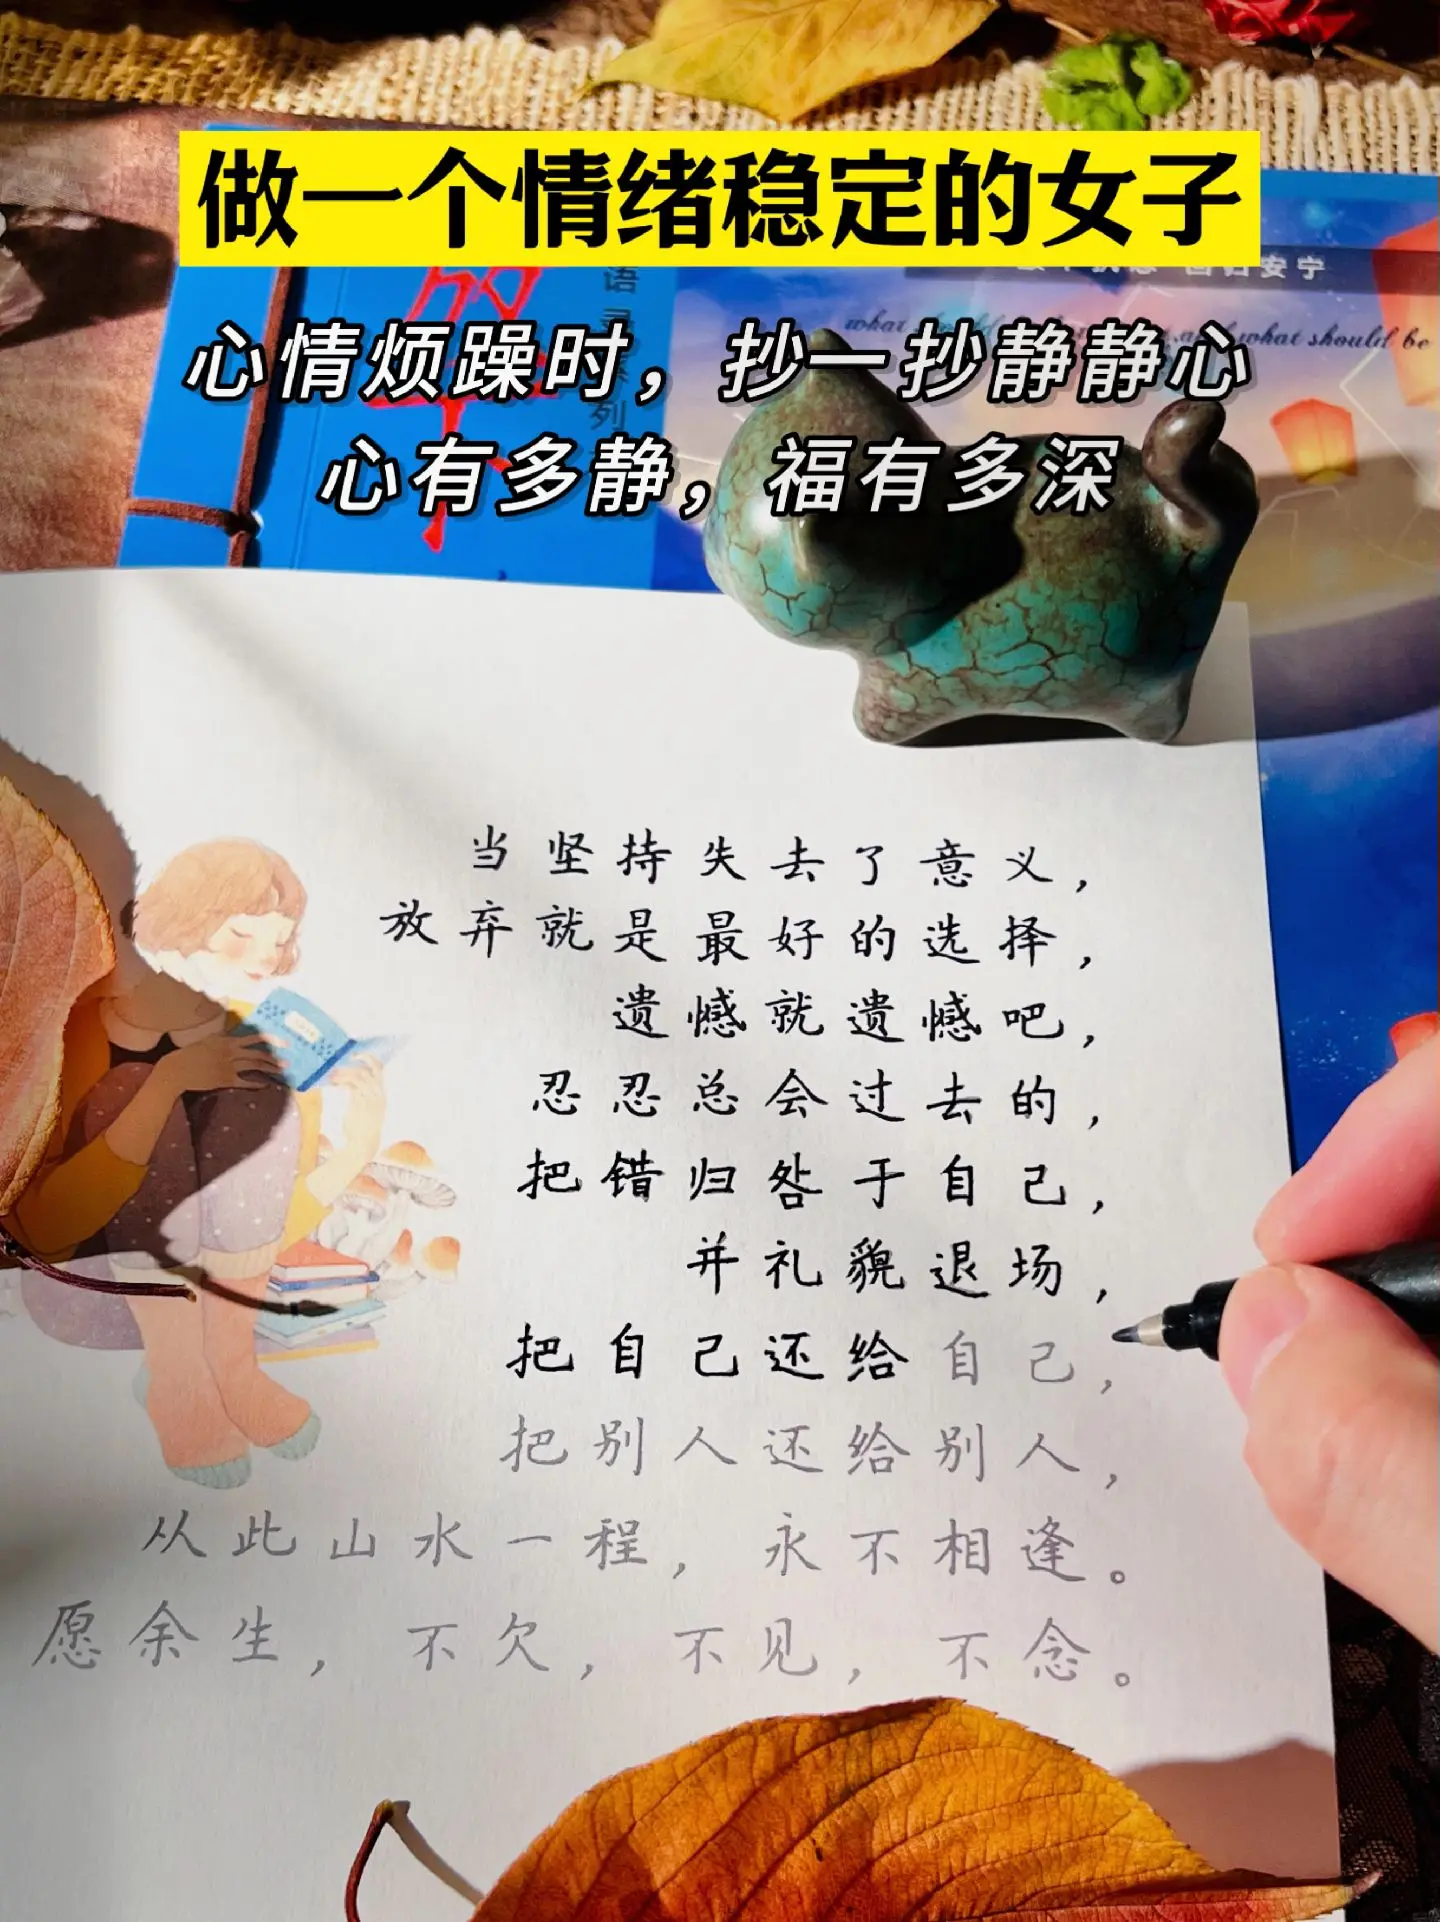 做一个情绪稳定的女子
安宁
语
what should be
心情烦躁时，抄一抄静静心
列
心有多静，福有多深
当坚持失去了意义，
放弃就是最好的选择，
遗憾就遗憾吧，
忍忍总会过去的，
把错归咎于自己，
并礼貌退场，
把自己还给自己，
把别人还给别人，
从此山水一程，永不相逢。
愿余生，不欠，不见，不念。